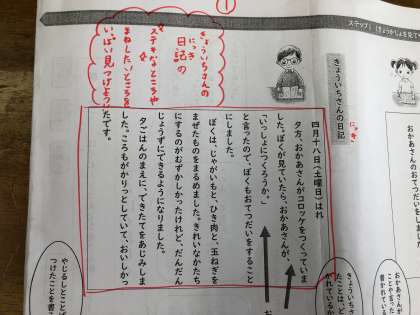 ステップ1
①
きょういちさんの
日記の
ステキなところや
まねしたいところを
いっぱい見つけよう
きょういちさんの日記
にっき
四月十八日（土曜日）はれ
夕方、おかあさんがコロッケをつくっていま
した。ぼくが見ていたら、おかあさんが、
「いっしょにつくろうか。」
と言ったので、ぼくもおてつだいをすること
にしました。
ぼくは、じゃがいもと、ひき肉と、玉ねぎを
まぜたものをまるめました。きれいなかたち
にするのがむずかしかったけれど、だんだん
じょうずにできるようになりました。
夕ごはんのまえに、できたてをあじみしま
した。ころもがかりっとしていて、おいしかっ
たです。
やじるしとことば
つけたことを書